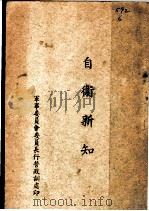 自衛新知
軍事委員會委員長行營政訓處印
592
6